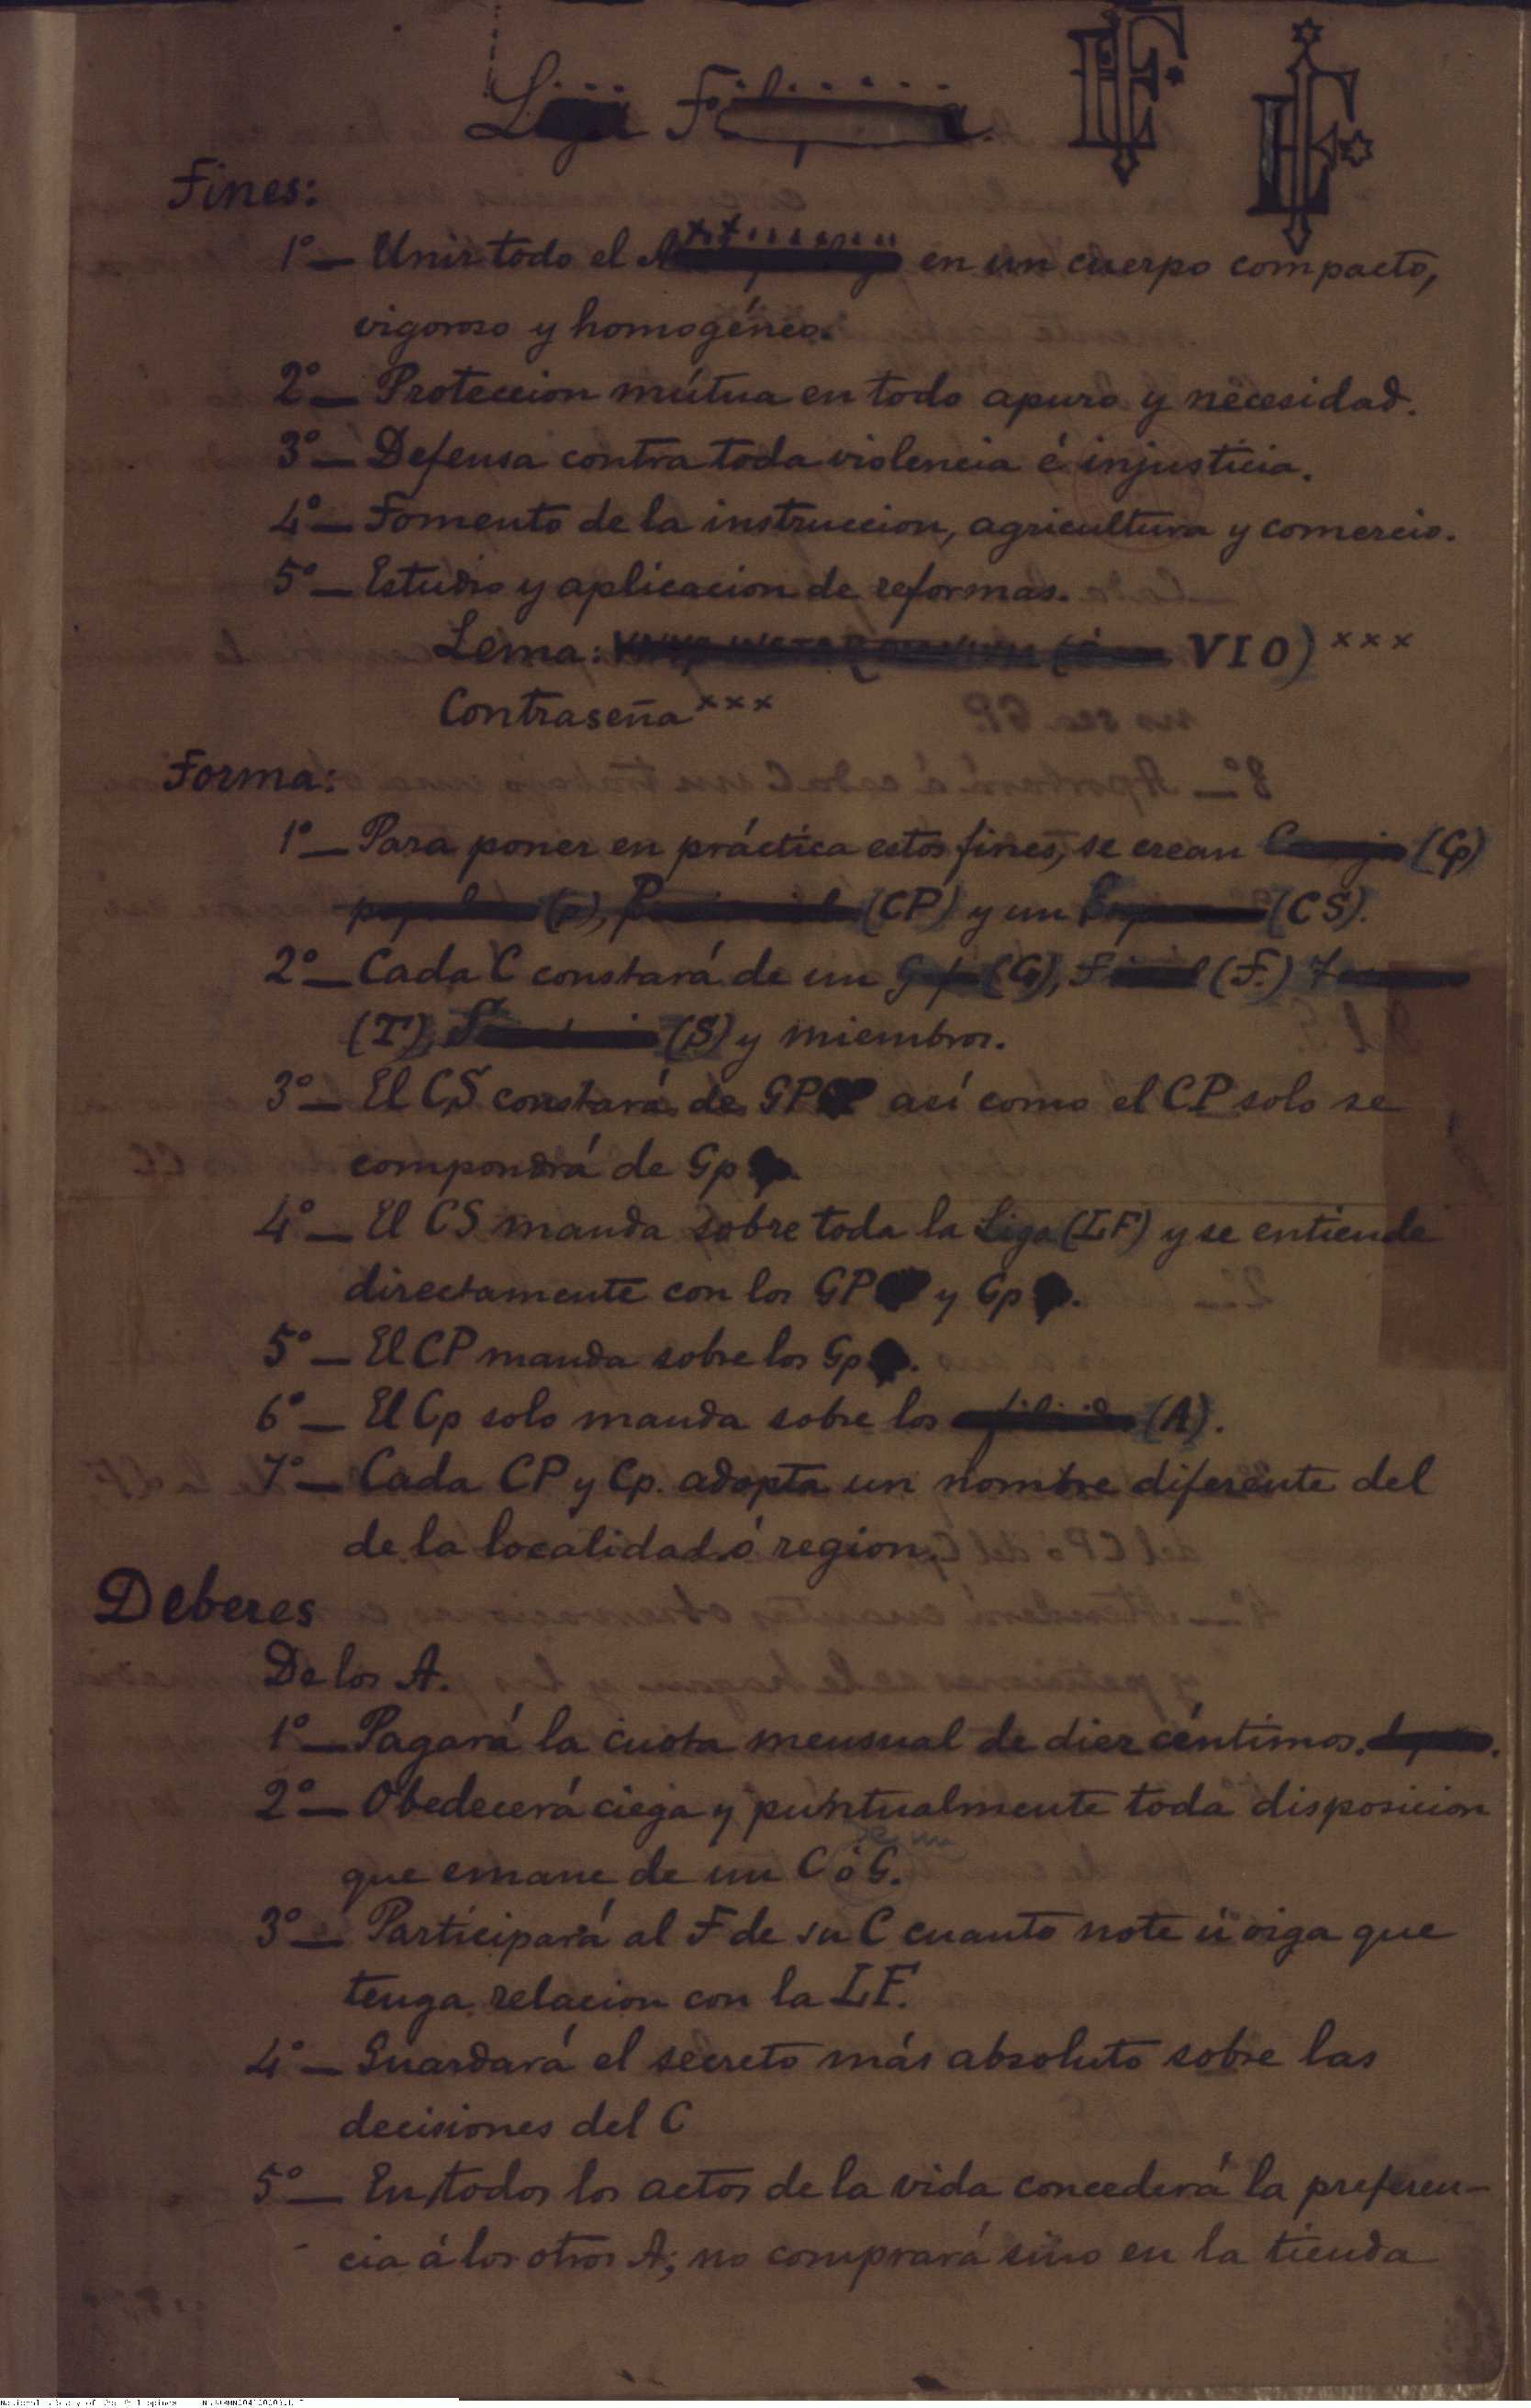 LF LF
Fines:
1º — Unir todo el en un cuerpo compacto,
vigoroso y homogéneo.
2º — Proteccion mútua en todo apuro y necesidad.
3º — Defensa contra toda violencia é injusticia.
4º — Fomento de la instruccion, agricultura y comercio.
5º — Estudio y aplicacion de reformas.
Lema: VIO) xxx
Contraseña xxx
Forma:
1º — Para poner en práctica estos fines, se crean (Cp)
(p), (CP) y un (CS).
2º — Cada C constará de un (G), (F.)
(T), (S) y miembros.
3º — El CS constará de GP así como el CP solo se
compondrá de Gp
4º — El CS manda sobre toda la Liga (LF) y se entiende
directamente con los GP y Gp .
5º — El CP manda sobre los Gp .
6º — El Cp solo manda sobre los (A).
7º — Cada CP y Cp. adopta un nombre diferente del
de la localidad ó region.
Deberes
De los A.
1º — Pagará la cuota mensual de diez céntimos.
2º — Obedecerá ciega y puntualmente toda disposicion
que emane de un C ó G.
3º — Participará al F de su C cuanto note ú oiga que
tenga relacion con la LF.
4º — Guardará el secreto más absoluto sobre las
decisiones del C
5º — En todos los actos de la vida concederá la preferen-
cia á los otros A; no comprará sino en la tienda
National Library of the Philippines